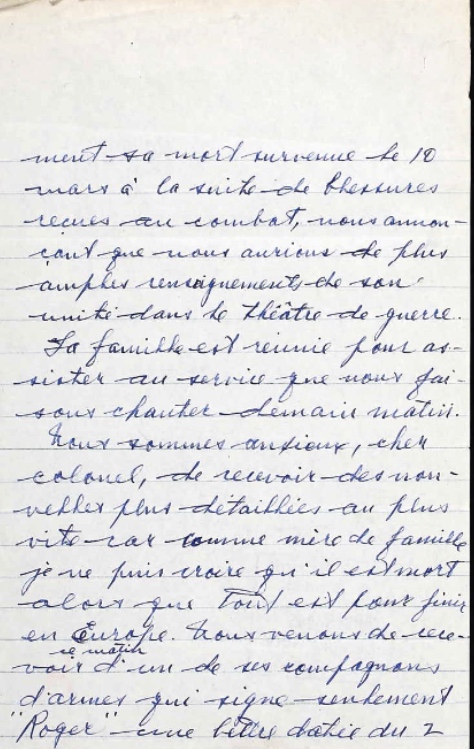 ment sa mort survenue le 10
mars à la suite de blessures
reçues au combat, nous annon-
çant que nous aurions de plus
amples renseignements de son
unité dans le théâtre de guerre.
La famille est réunie pour as-
sister au service que nous fai-
sons chanter demain matin.
Nous sommes anxieux, cher
colonel, de recevoir des nou-
velles plus détaillées au plus
vite car comme mère de famille
je ne puis croire qu'il est mort
alors que tout est pour finir
en Europe. Nous venons de rece-
ce matin
voir d'un de ses compagnons
d'armes qui signe seulement
"Roger" une lettre datée du 2